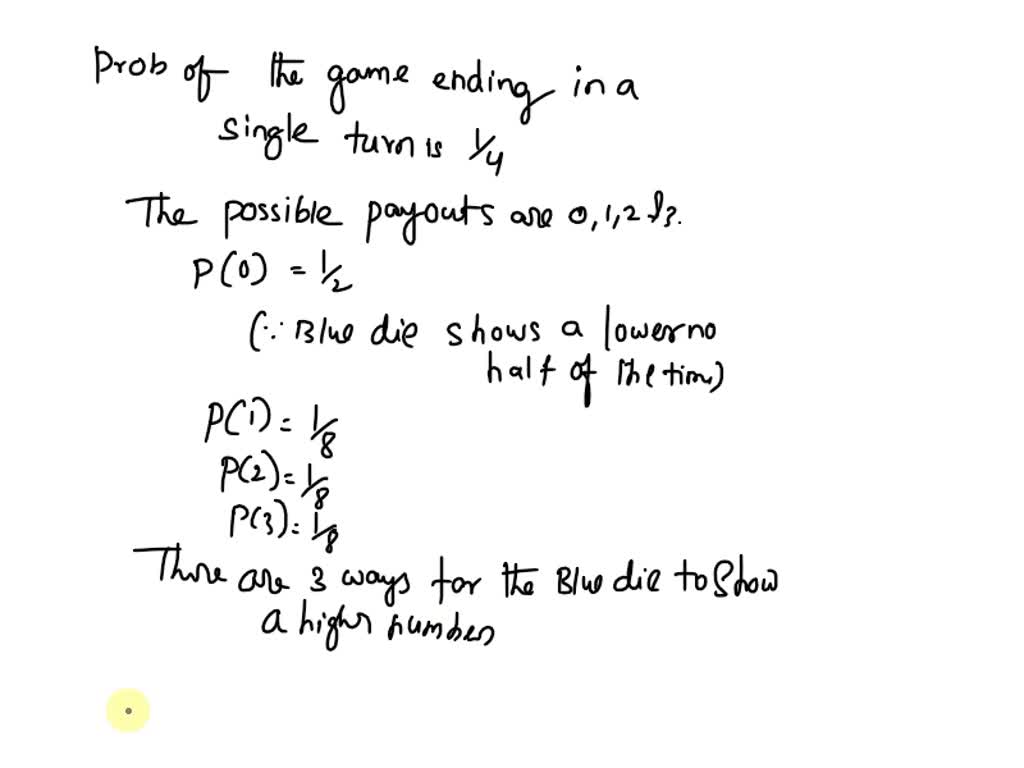 Prob of the game ending in a
single turn is 1/4
The possible payouts are 0,1,2 & 3.
P(0) = 1/2
(∵ Blue die shows a lower no
half of the time)
P(1) = 1/8
P(2) = 1/8
P(3) = 1/8
There are 3 ways for the Blue die to show
a higher number